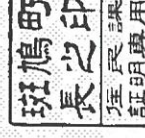 斑鳩町
長之印
住民課
証明専用